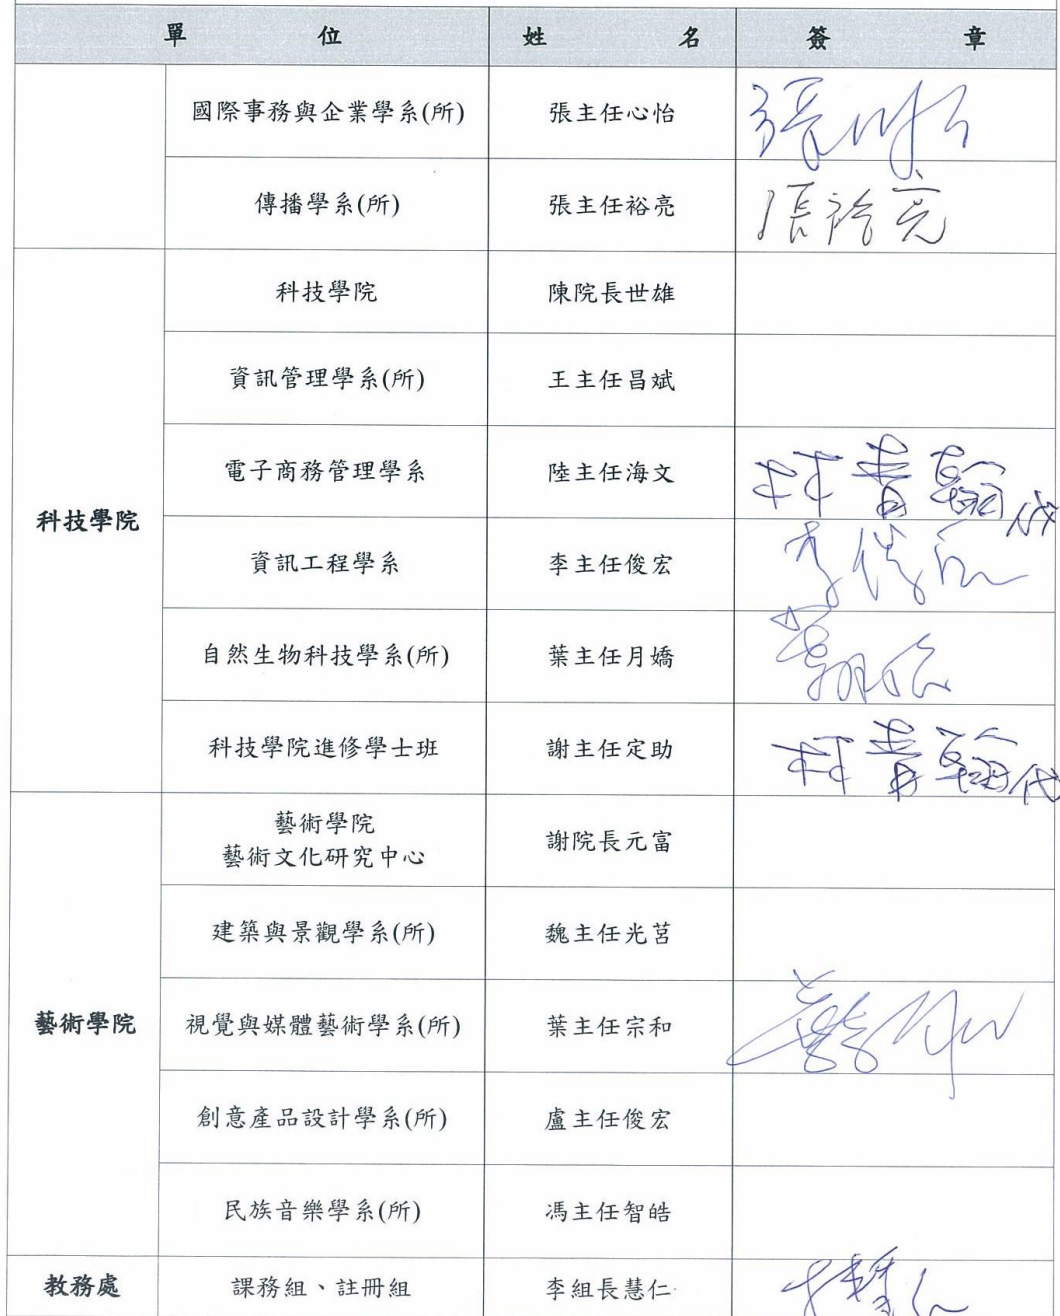 單位 姓名 簽章
國際事務與企業學系(所) 張主任心怡
傳播學系(所) 張主任裕亮 張裕亮
科技學院
科技學院 陳院長世雄
資訊管理學系(所) 王主任昌斌
電子商務管理學系 陸主任海文 代
資訊工程學系 李主任俊宏 李俊宏
自然生物科技學系(所) 葉主任月嬌
科技學院進修學士班 謝主任定助 代
藝術學院
藝術學院
藝術文化研究中心 謝院長元富
建築與景觀學系(所) 魏主任光莒
視覺與媒體藝術學系(所) 葉主任宗和
創意產品設計學系(所) 盧主任俊宏
民族音樂學系(所) 馮主任智皓
教務處 課務組、註冊組 李組長慧仁